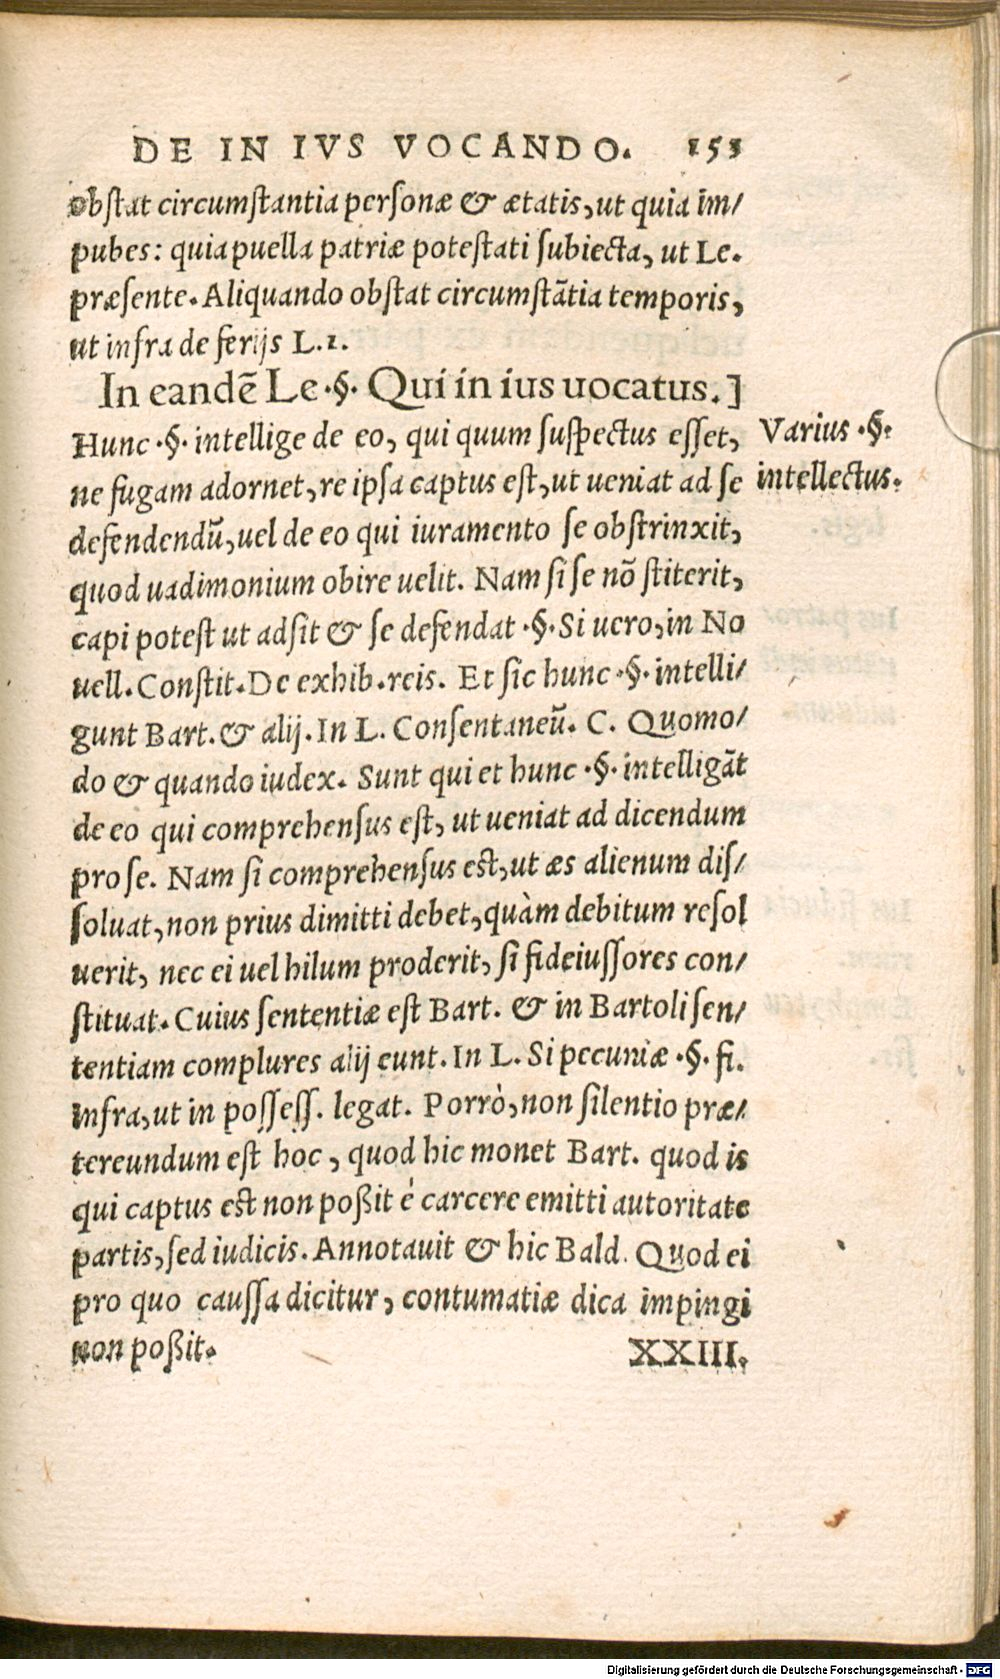 DE IN IVS VOCANDO. 153
obſtat circumſtantia perſonæ & ætatis, ut quia im/
pubes: quia puella patriæ poteſtati ſubiecta, ut Le.
præſente. Aliquando obſtat circumſtãtia temporis,
ut infra de ferijs L.1.
In eandẽ Le .§. Qui in ius uocatus.]
Hunc .§. intellige de eo, qui quum ſuſpectus eſſet,
Varius .§.
ne fugam adornet, re ipſa captus eſt, ut ueniat ad ſe
intellectus.
defendendũ, uel de eo qui iuramento ſe obſtrinxit,
quod uadimonium obire uelit. Nam ſi ſe nõ ſtiterit,
capi poteſt ut adſit & ſe defendat .§. Si uero, in No
uell. Conſtit. De exhib. reis. Et ſic hunc .§. intelli/
gunt Bart. & alij. In L. Conſentaneũ. C. Quomo/
do & quando iudex. Sunt qui et hunc .§. intelligãt
de eo qui comprehenſus eſt, ut ueniat ad dicendum
pro ſe. Nam ſi comprehenſus eſt, ut æs alienum diſ/
ſoluat, non prius dimitti debet, quàm debitum reſol
uerit, nec ei uel hilum proderit, ſi fideiuſſores con/
ſtituat. Cuius ſententiæ eſt Bart. & in Bartoli ſen/
tentiam complures alij eunt. In L. Si pecuniæ .§. fi.
infra, ut in poſſeſſ. legat. Porrò, non ſilentio præ/
tereundum eſt hoc, quod hic monet Bart. quod is
qui captus eſt non poßit è carcere emitti autoritate
partis, ſed iudicis. Annotauit & hic Bald. Quod ei
pro quo cauſſa dicitur, contumatiæ dica impingi
non poßit. XXIII.
Digitalisierung gefördert durch die Deutsche Forschungsgemeinschaft - DFG